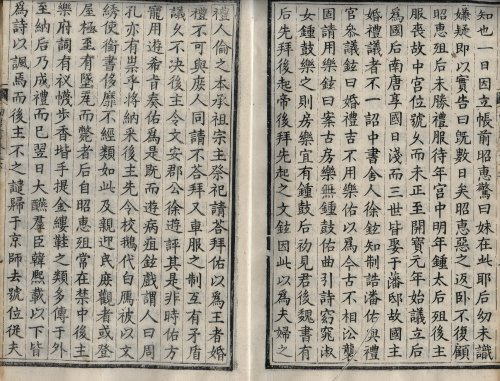 知也一日因立帳前昭惠驚曰妹在此耶后幼未識
嫌疑即以實告曰既數日矣昭惠惡之返卧不復顧
昭惠殂后未勝禮服待年宮中明年鍾太后殂後主
服喪故中宮位號久而未正至開寶元年始議立后
為國后南唐享國日淺而三世皆娶于藩邸故國主
婚禮議者不一詔中書舍人徐鉉知制誥潘佑與禮
官參議鉉曰婚禮吉不用樂佑以為今古不相㳂襲
固請用樂鉉曰案古房樂無鍾鼓佑曲引詩窈窕淑
女鍾鼓樂之則房樂宜有鍾鼓后初見君後魏書有
后先拜後起帝後拜先起之文鉉因此以為夫婦之
禮人倫之本承祖宗主祭祀請荅拜佑以為王者婚
禮不可與庶人同請不荅拜又車服之制互有矛盾
議久不決後主令文安郡公徐遊評其是非時佑方
寵用遊希旨奏佑為是既而遊病疽鉉戲謂人曰周
孔亦有祟乎將納采後主先令校鵝代白鴈被以文
繡使銜書侈靡不經類如此及親迎民庶觀者或登
屋極至有墜瓦而斃者后自昭惠殂常在禁中後主
樂府詞有衩襪步香堦手提金縷鞋之類多傳于外
至納后乃成禮而已翌日大醼羣臣韓熙載以下皆
為詩以諷焉而後主不之譴歸于京師去號位從夫